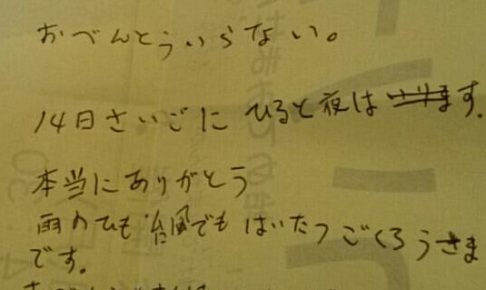 おべんとういらない。
14日さいごに ひると夜は います。
本当にありがとう
雨のひも 台風でも はいたつ ごくろうさま
です。